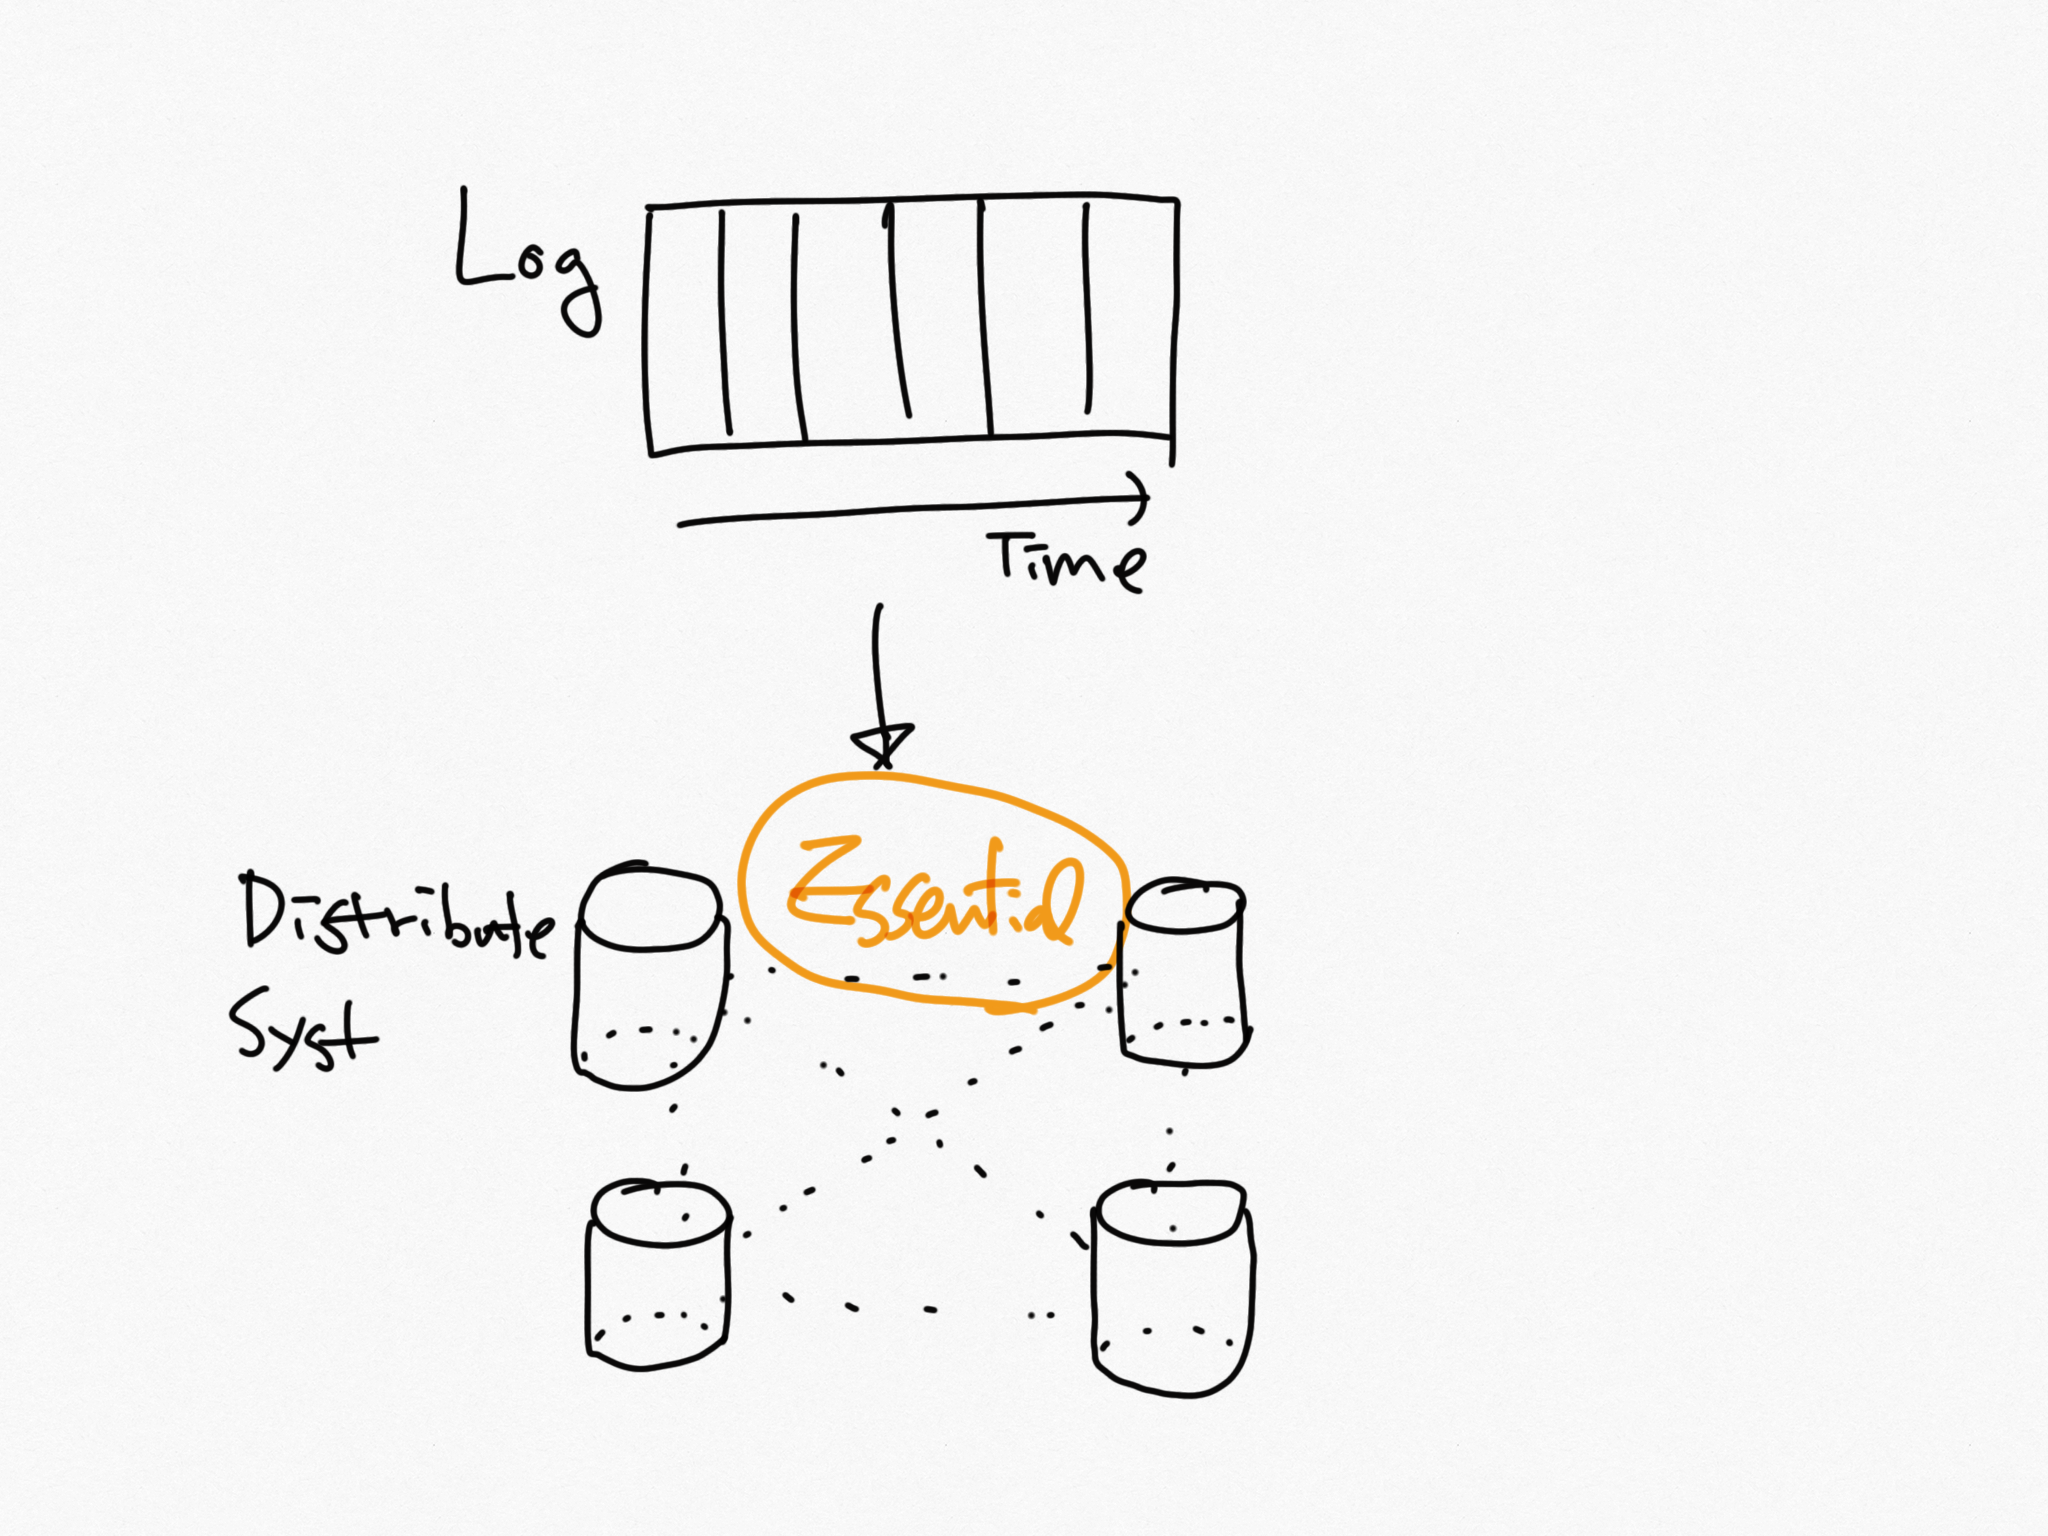 Log
Time
Essential
Distribute
Syst